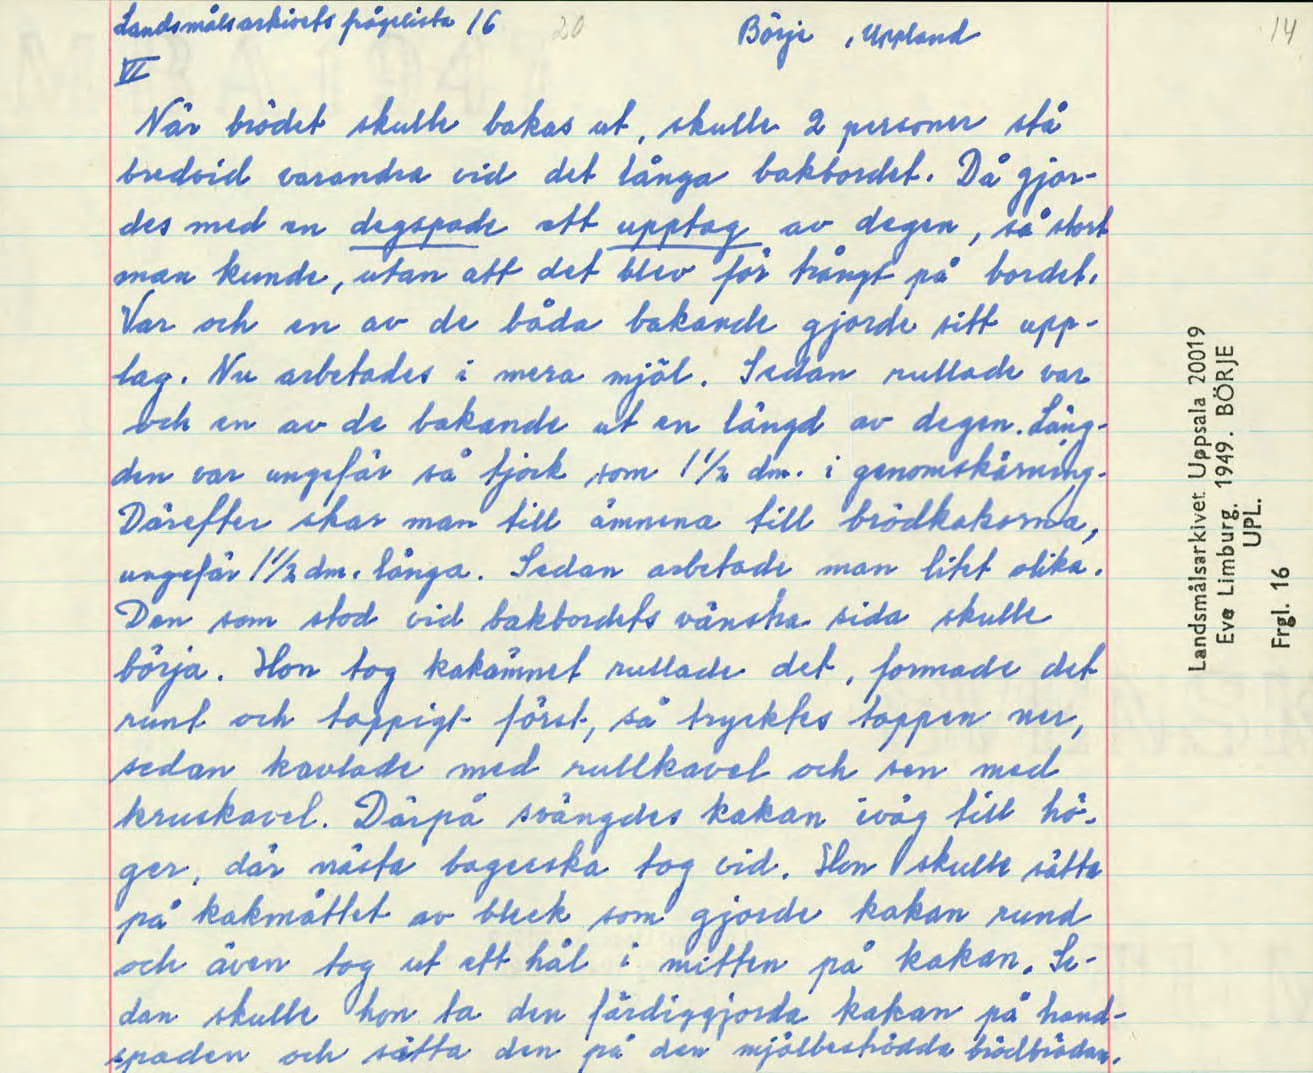 Landsmålsarkivets frågelista 16 20 Börje, Uppland 14
VI
När brödet skulle bakas ut, skulle 2 personer stå
bredvid varandra vid det långa bakbordet. Då gjor-
des med en degspade ett upptag av degen, så stort
man kunde, utan att det blev för trångt på bordet.
Var och en av de båda bakande gjorde sitt upp-
tag. Nu arbetades i mera mjöl. Sedan rullade var
och en av de bakande ut en längd av degen. Läng-
den var ungefär så tjock som 1 1/2 dm. i genomskärning.
Därefter skar man till ämnena till brödkakorna,
ungefär 1 1/2 dm. långa. Sedan arbetade man litet olika.
Den som stod vid bakbordets vänstra sida skulle
börja. Hon tog kakämnet rullade det, formade det
runt och toppigt först, så trycktes toppen ner,
sedan kavlade med rullkavel och sen med
kruskavel. Därpå svängdes kakan iväg till hö-
ger, där nästa bagerska tog vid. Hon skulle sätta
på kakmåttet av bleck som gjorde kakan rund
och även tog ut ett hål i mitten på kakan. Se-
dan skulle hon ta den färdiggjorda kakan på hand-
spaden och sätta den på den mjölbeströdda brödbrädan.
Landsmålsarkivet Uppsala 20019
Eve Limburg. 1949. BÖRJE
UPL.
Frgl. 16